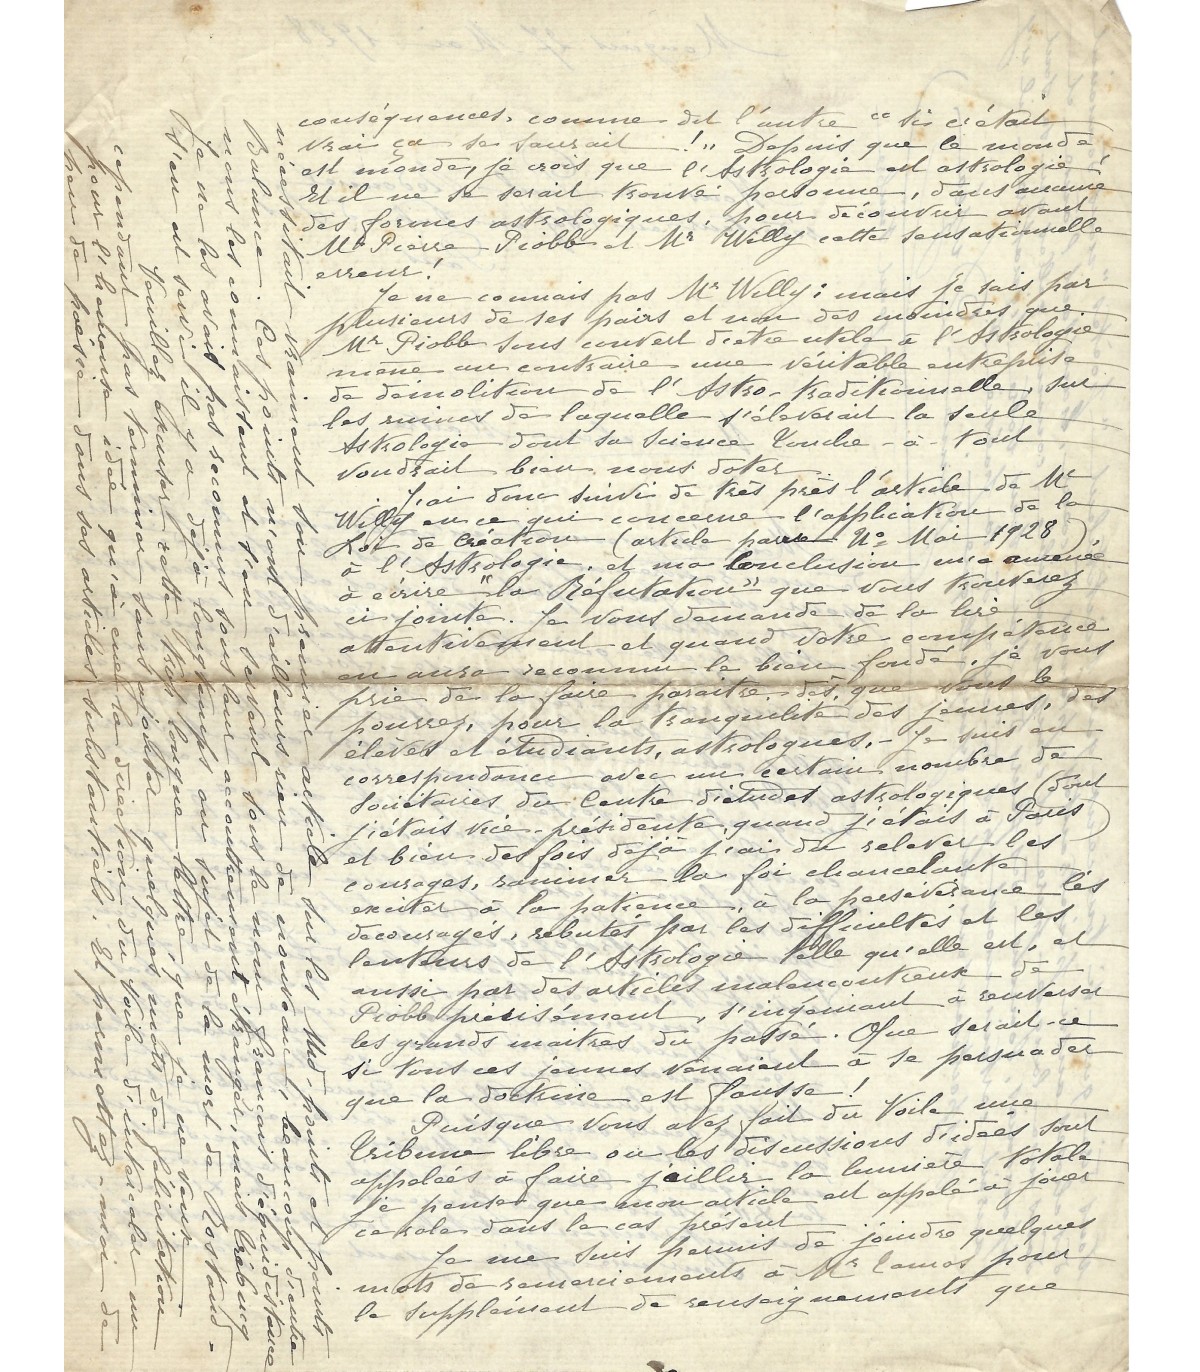 conséquences, comme dit l'autre "si c'était
vrai ça se saurait !" Depuis que le monde
est monde, je crois que l'Astrologie est astrologie
et il ne se serait trouvé personne, dans aucune
des formes astrologiques, pour découvrir avant
Mr Pierre Piobb et Mr Willy cette sensationnelle
erreur !
Je ne connais pas Mr Willy ; mais je sais par
plusieurs de ses pairs et non des moindres que
Mr Piobb sous couvert d'être utile à l'Astrologie
mène au contraire une véritable entreprise
de démolition de l'Astro-traditionnelle, sur
les ruines de laquelle s'élèverait la seule
Astrologie dont sa science touche-à-tout
voudrait bien nous doter.
J'ai donc suivi de très près l'article de Mr
Willy en ce qui concerne l'application de la
Loi de Création (article paru No Mai 1928)
à l'Astrologie, et ma conclusion m'a amenée
à écrire "la Réfutation" que vous trouverez
ci jointe. Je vous demande de la lire
attentivement et quand votre compétence
en aura reconnu le bien fondé, je vous
prie de la faire paraître, dès que vous le
pourrez, pour la tranquilité des jeunes, des
élèves et étudiants, astrologues. - Je suis en
correspondance avec un certain nombre de
Sociétaires du Centre d'études astrologiques (dont
j'étais vice-présidente, quand j'étais à Paris)
et bien des fois déjà j'ai du relever les
courages, ranimer la foi chancelante
exciter à la patience, à la persévérance les
découragés, rebutés par les difficultés et les
lenteurs de l'Astrologie telle qu'elle est, et
aussi par des articles malencontreux de
Piobb précisément, s'ingéniant à renverser
les grands maîtres du passé. Que serait-ce
si tous ces jeunes venaient à se persuader
que la doctrine est fausse !
Puisque vous avez fait du Voile une
tribune libre ou les discussions d'idées sont
appelées à faire jaillir la lumière totale
je pense que mon article est appelé à jouer
ce role dans le cas présent
Je me suis permis de joindre quelques
mots de remerciements à Mr pour
le supplément de renseignements que
nécessitait vraiment son premier article sur les Mid-points et points
Balance. Ces points n'ont d'ailleurs rien de nouveau, beaucoup d'entre
nous les connaissent et s'en servent sous le nom français d'équidistance
Je ne les avais pas reconnus sous leur accoutrement étranger, mais Trébucq
s'en est servi il y a déjà longtemps au sujet de la mort de Rostand.
Veuillez excuser cette trop longue lettre, que je ne veux
cependant pas terminer sans ajouter quelques mots de félicitation
pour l'heureuse idée qu'a eue la direction du Voile d'intercaler un
peu de poésie dans ses articles substantiels. Et permettez-moi de